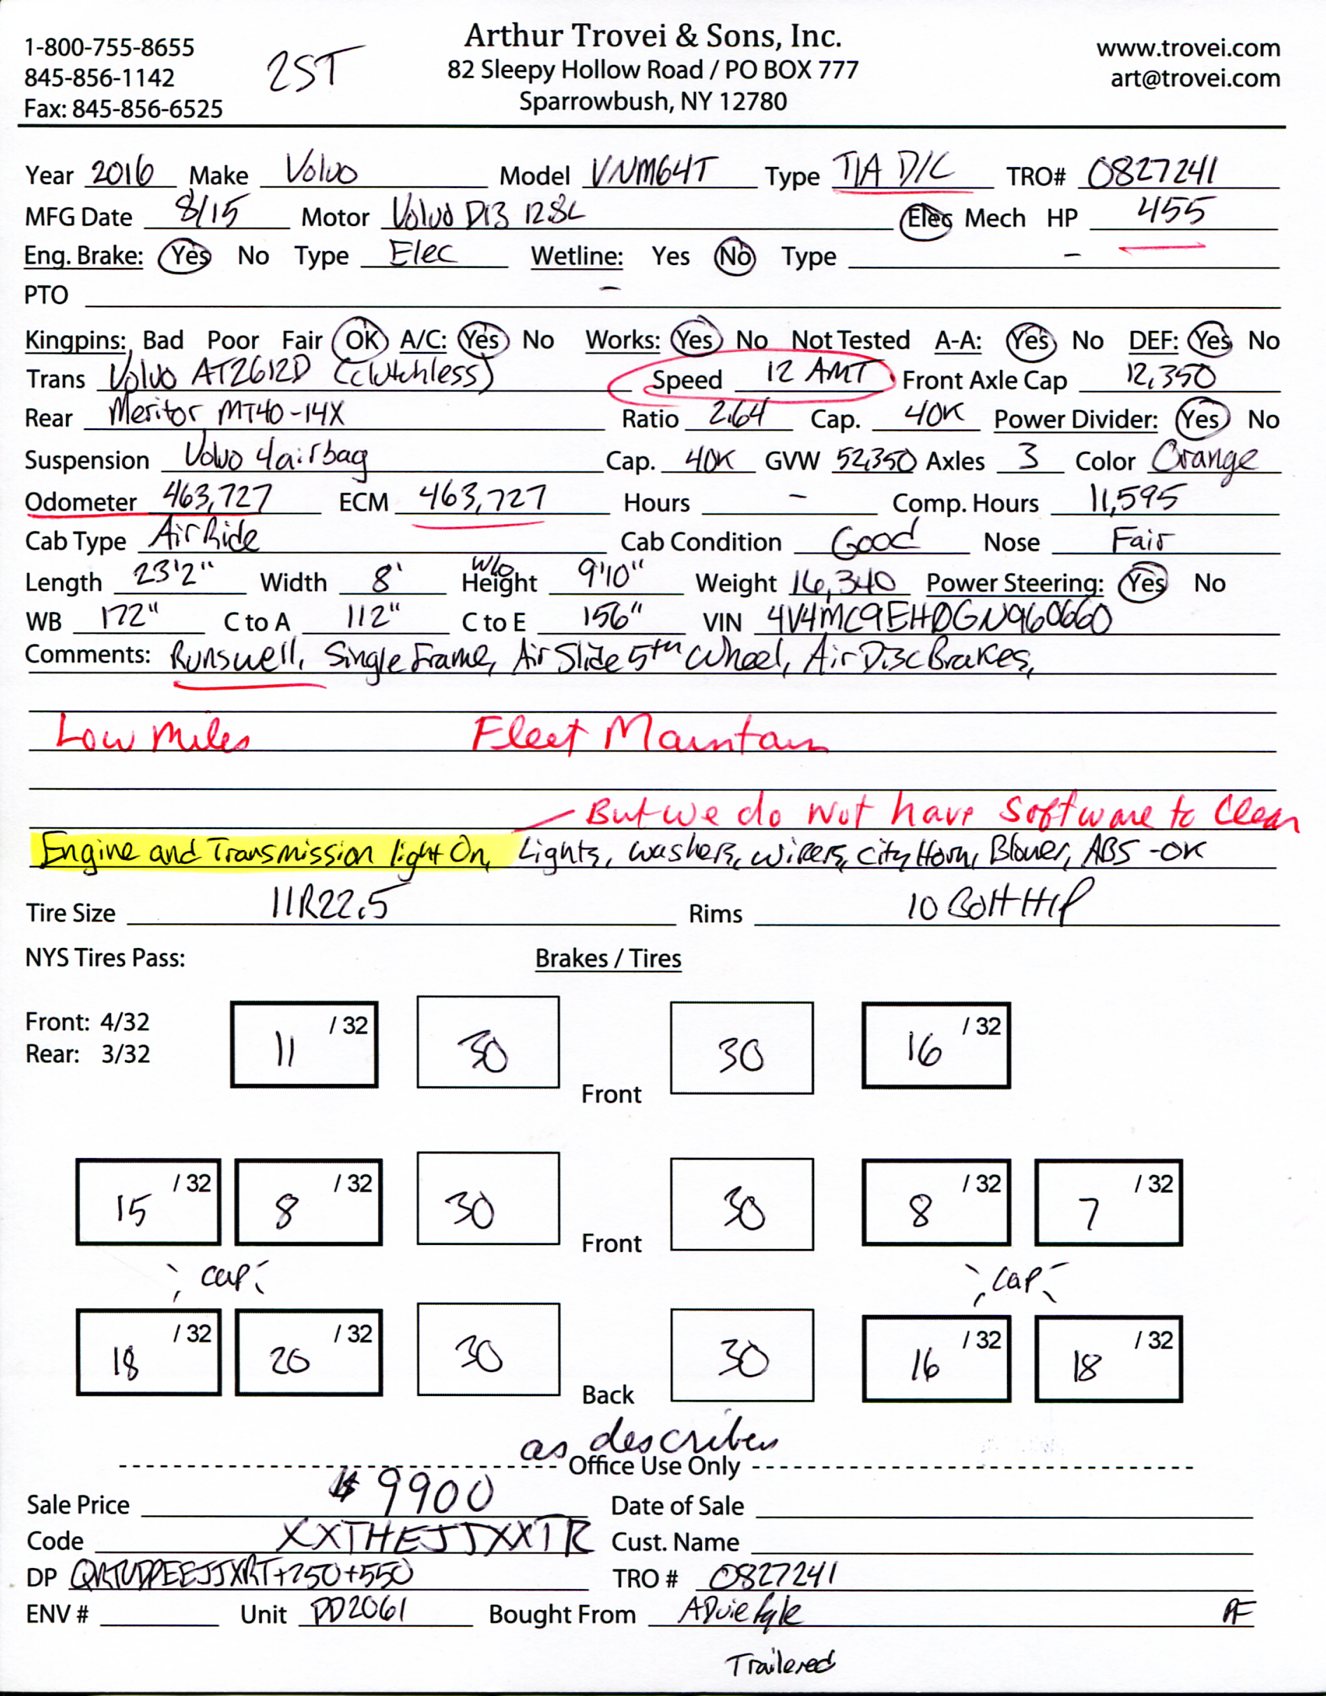 1-800-755-8655
845-856-1142
Fax: 845-856-6525
2ST
Arthur Trovei & Sons, Inc.
82 Sleepy Hollow Road / PO BOX 777
Sparrowbush, NY 12780
www.trovei.com
art@trovei.com
Year 2016 Make Volvo Model VNM64T Type T/A D/C TRO# 0827241
MFG Date 8/15 Motor Volvo D13 12.8L Elec Mech HP 455
Eng. Brake: Yes No Type Elec Wetline: Yes No Type -
PTO -
Kingpins: Bad Poor Fair OK A/C: Yes No Works: Yes No Not Tested A-A: Yes No DEF: Yes No
Trans Volvo AT2612D (Clutchless) Speed 12 AMT Front Axle Cap 12,350
Rear Meritor MT40-14X Ratio 2.64 Cap. 40K Power Divider: Yes No
Suspension Volvo 4airbag Cap. 40K GVW 52,350 Axles 3 Color Orange
Odometer 463,727 ECM 463,727 Hours - Comp. Hours 11,595
Cab Type Air Ride Cab Condition Good Nose Fair
Length 23'2" Width 8' W/o Height 9'10" Weight 16,340 Power Steering: Yes No
WB 172" C to A 112" C to E 156" VIN 4V4MC9EH0GN960660
Comments: Runs well, Single Frame, Air Slide 5th Wheel, Air Disc Brakes,
Low miles Fleet Maintain
But we do not have software to clean
Engine and Transmission light On, Lights, washers, wipers, City Horn, Blower, ABS -OK
Tire Size 11R22.5 Rims 10 Bolt HP
NYS Tires Pass: Brakes / Tires
Front: 4/32
Rear: 3/32
11 /32 30 Front 30 16 /32
15 /32 8 /32 30 Front 30 8 /32 7 /32
cap cap
18 /32 20 /32 30 Back 30 16 /32 18 /32
as describes
Office Use Only
Sale Price $9900 Date of Sale
Code XXTHEJJXXTR Cust. Name
DP +250+550 TRO # 0827241
ENV # Unit PD2061 Bought From
PF
Trailered